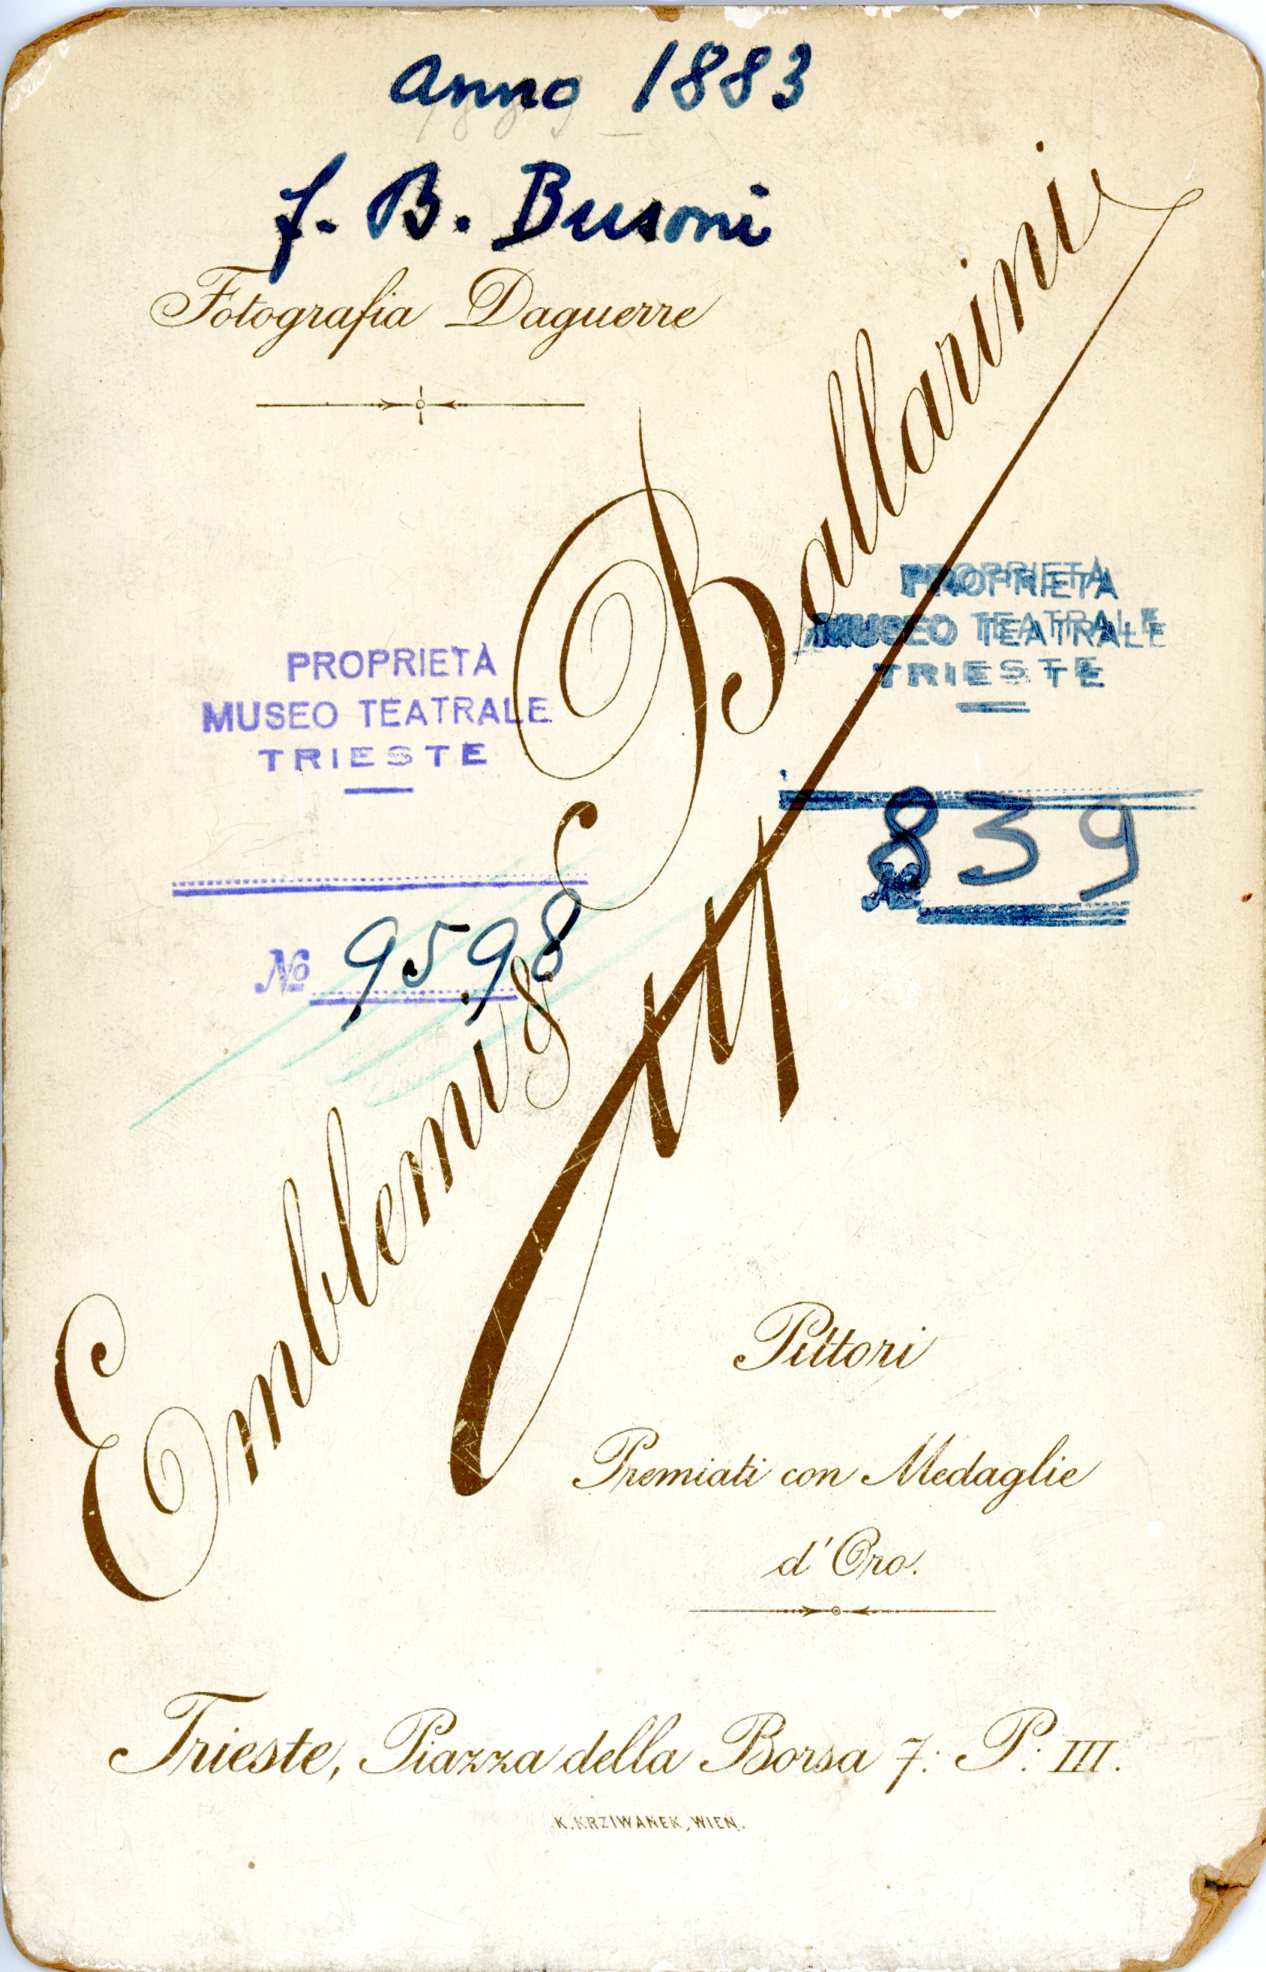 anno 1883
f. B. Busoni
Fotografia Daguerre
Emblemi & Ballarini
PROPRIETÀ
MUSEO TEATRALE
TRIESTE
№ 9598
PROPRIETÀ
MUSEO TEATRALE
TRIESTE
№ 839
Pittori
Premiati con Medaglie
d'Oro.
Trieste, Piazza della Borsa 7: P: III.
K. KRZIWANEK, WIEN.